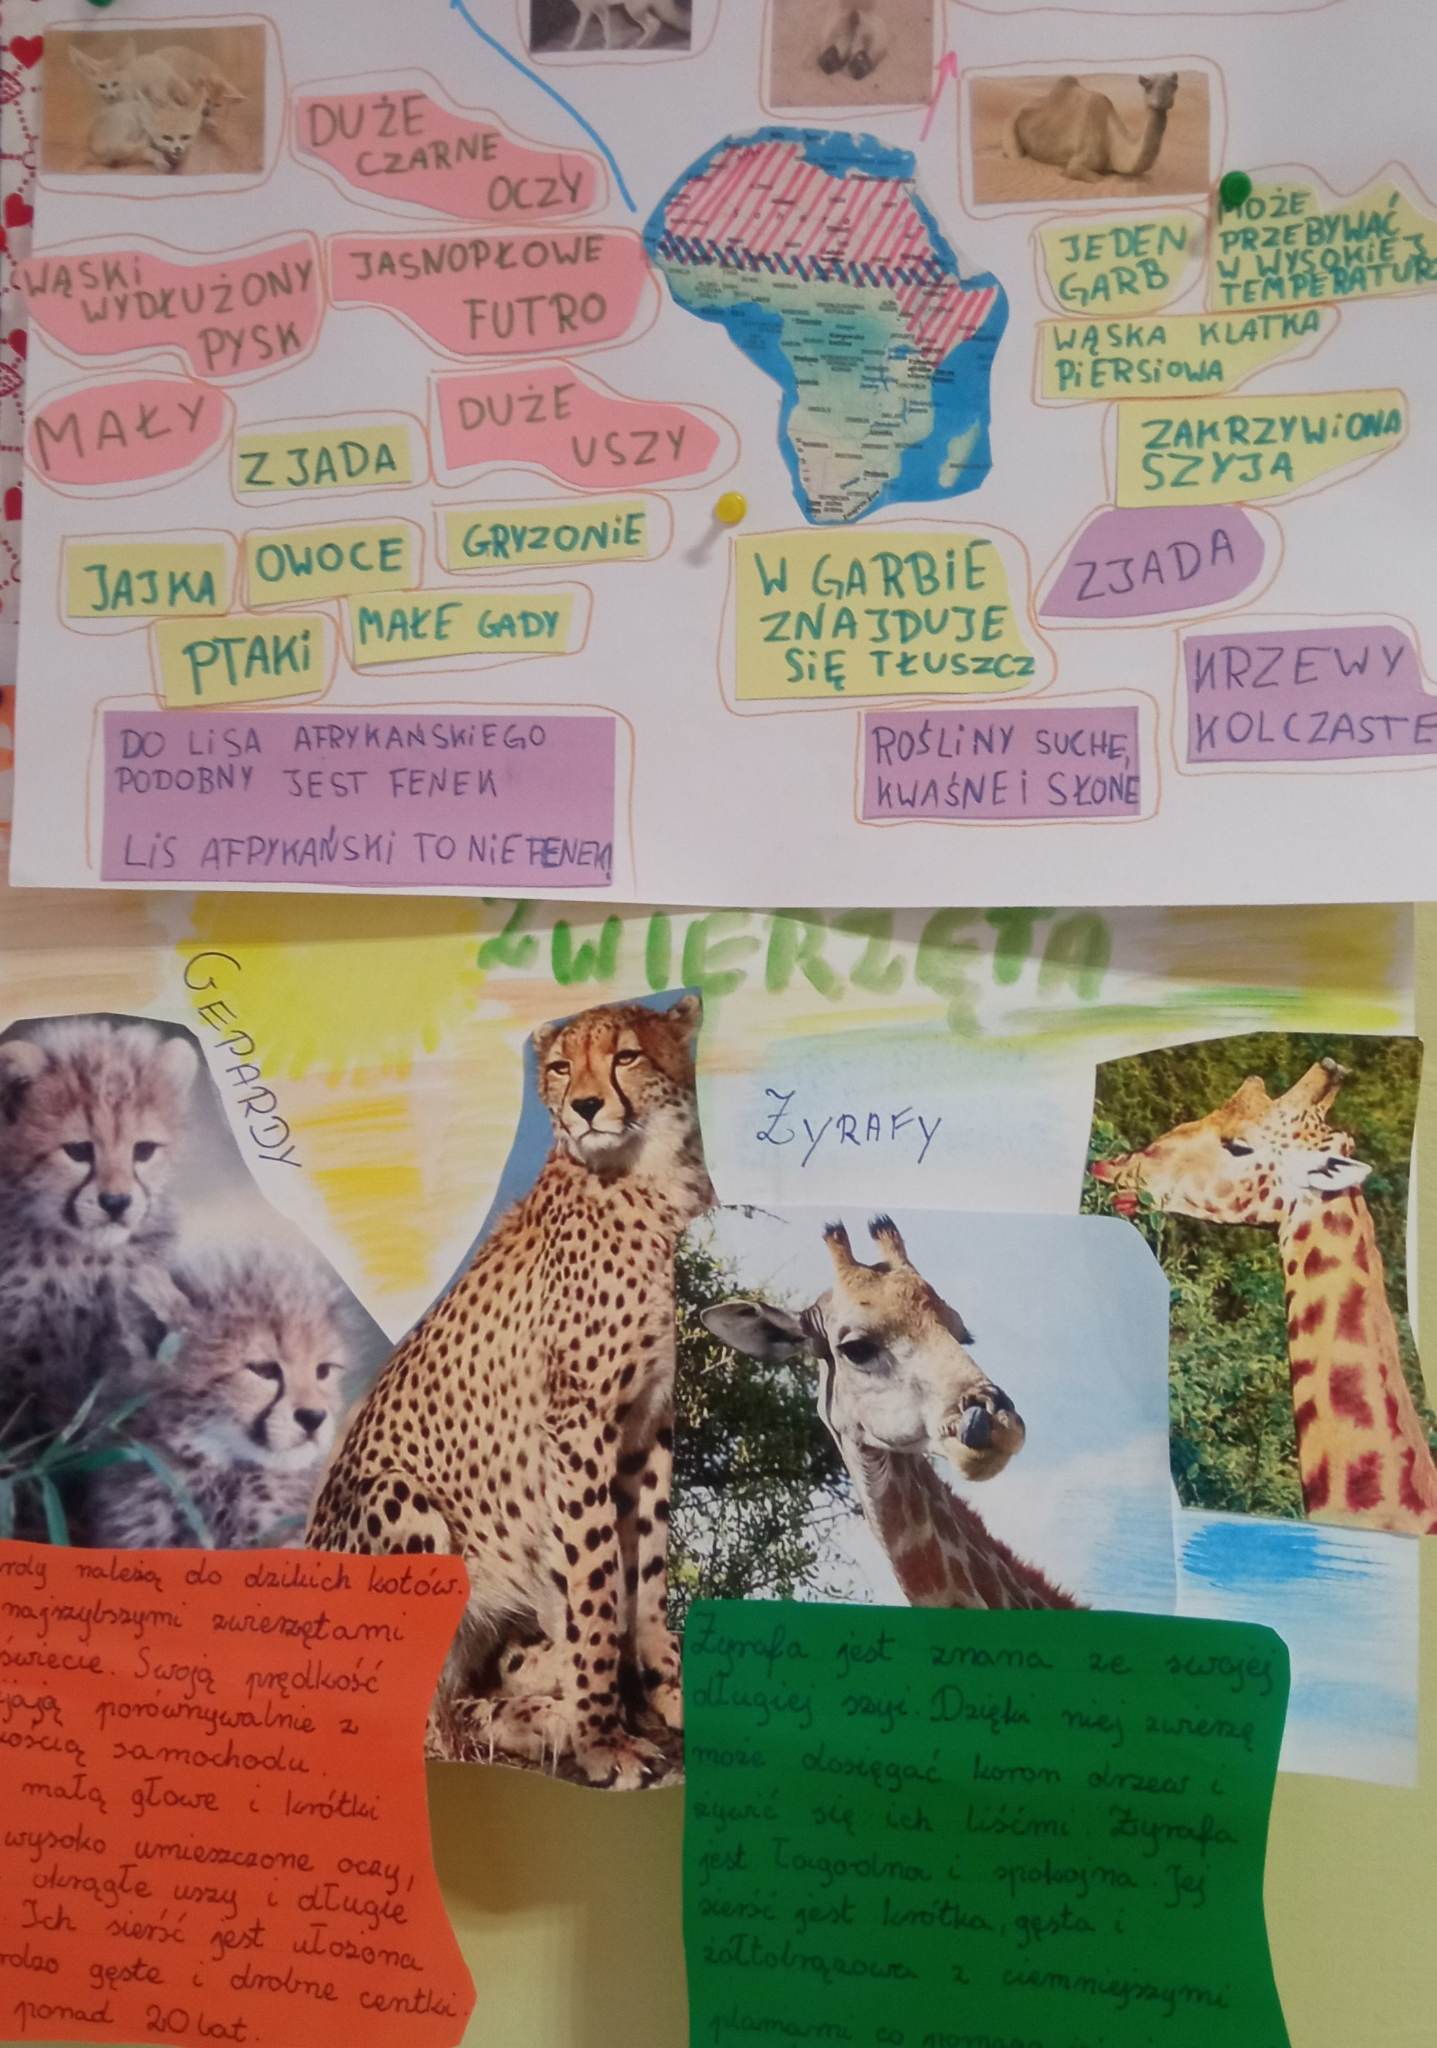 DUŻE
CZARNE
OCZY
WĄSKI
WYDŁUŻONY
PYSK
JASNOPŁOWE
FUTRO
MAŁY
ZJADA
DUŻE
USZY
JAJKA
OWOCE
GRYZONIE
PTAKI
MAŁE GADY
DO LISA AFRYKAŃSKIEGO
PODOBNY JEST FENEK
LIS AFRYKAŃSKI TO NIE FENEK!
JEDEN
GARB
MOŻE
PRZEBYWAĆ
W WYSOKIEJ
TEMPERATURZ
WĄSKA KLATKA
PIERSIOWA
ZAKRZYWIONA
SZYJA
W GARBIE
ZNAJDUJE
SIĘ TŁUSZCZ
ZJADA
KRZEWY
KOLCZASTE
ROŚLINY SUCHE,
KWAŚNE I SŁONE
ZWIERZĘTA
GEPARDY
ŻYRAFY
rdy należą do dzikich kotów.
najszybszymi zwierzętami
świecie. Swoją prędkość
ijają porównywalnie z
kością samochodu.
małą głowe i krótki
wysoko umieszczone oczy,
okrągłe uszy i długie
Ich sierść jest ułożona
rdzo gęste i drobne centki.
ponad 20 lat.
Żyrafa jest znana ze swojej
długiej szyi. Dzięki niej zwierzę
może dosięgać koron drzew i
żywić się ich liśćmi. Żyrafa
jest łagodna i spokojna. Jej
sierść jest krótka, gęsta i
żółtobrązowa z ciemniejszymi
plamami co pomaga